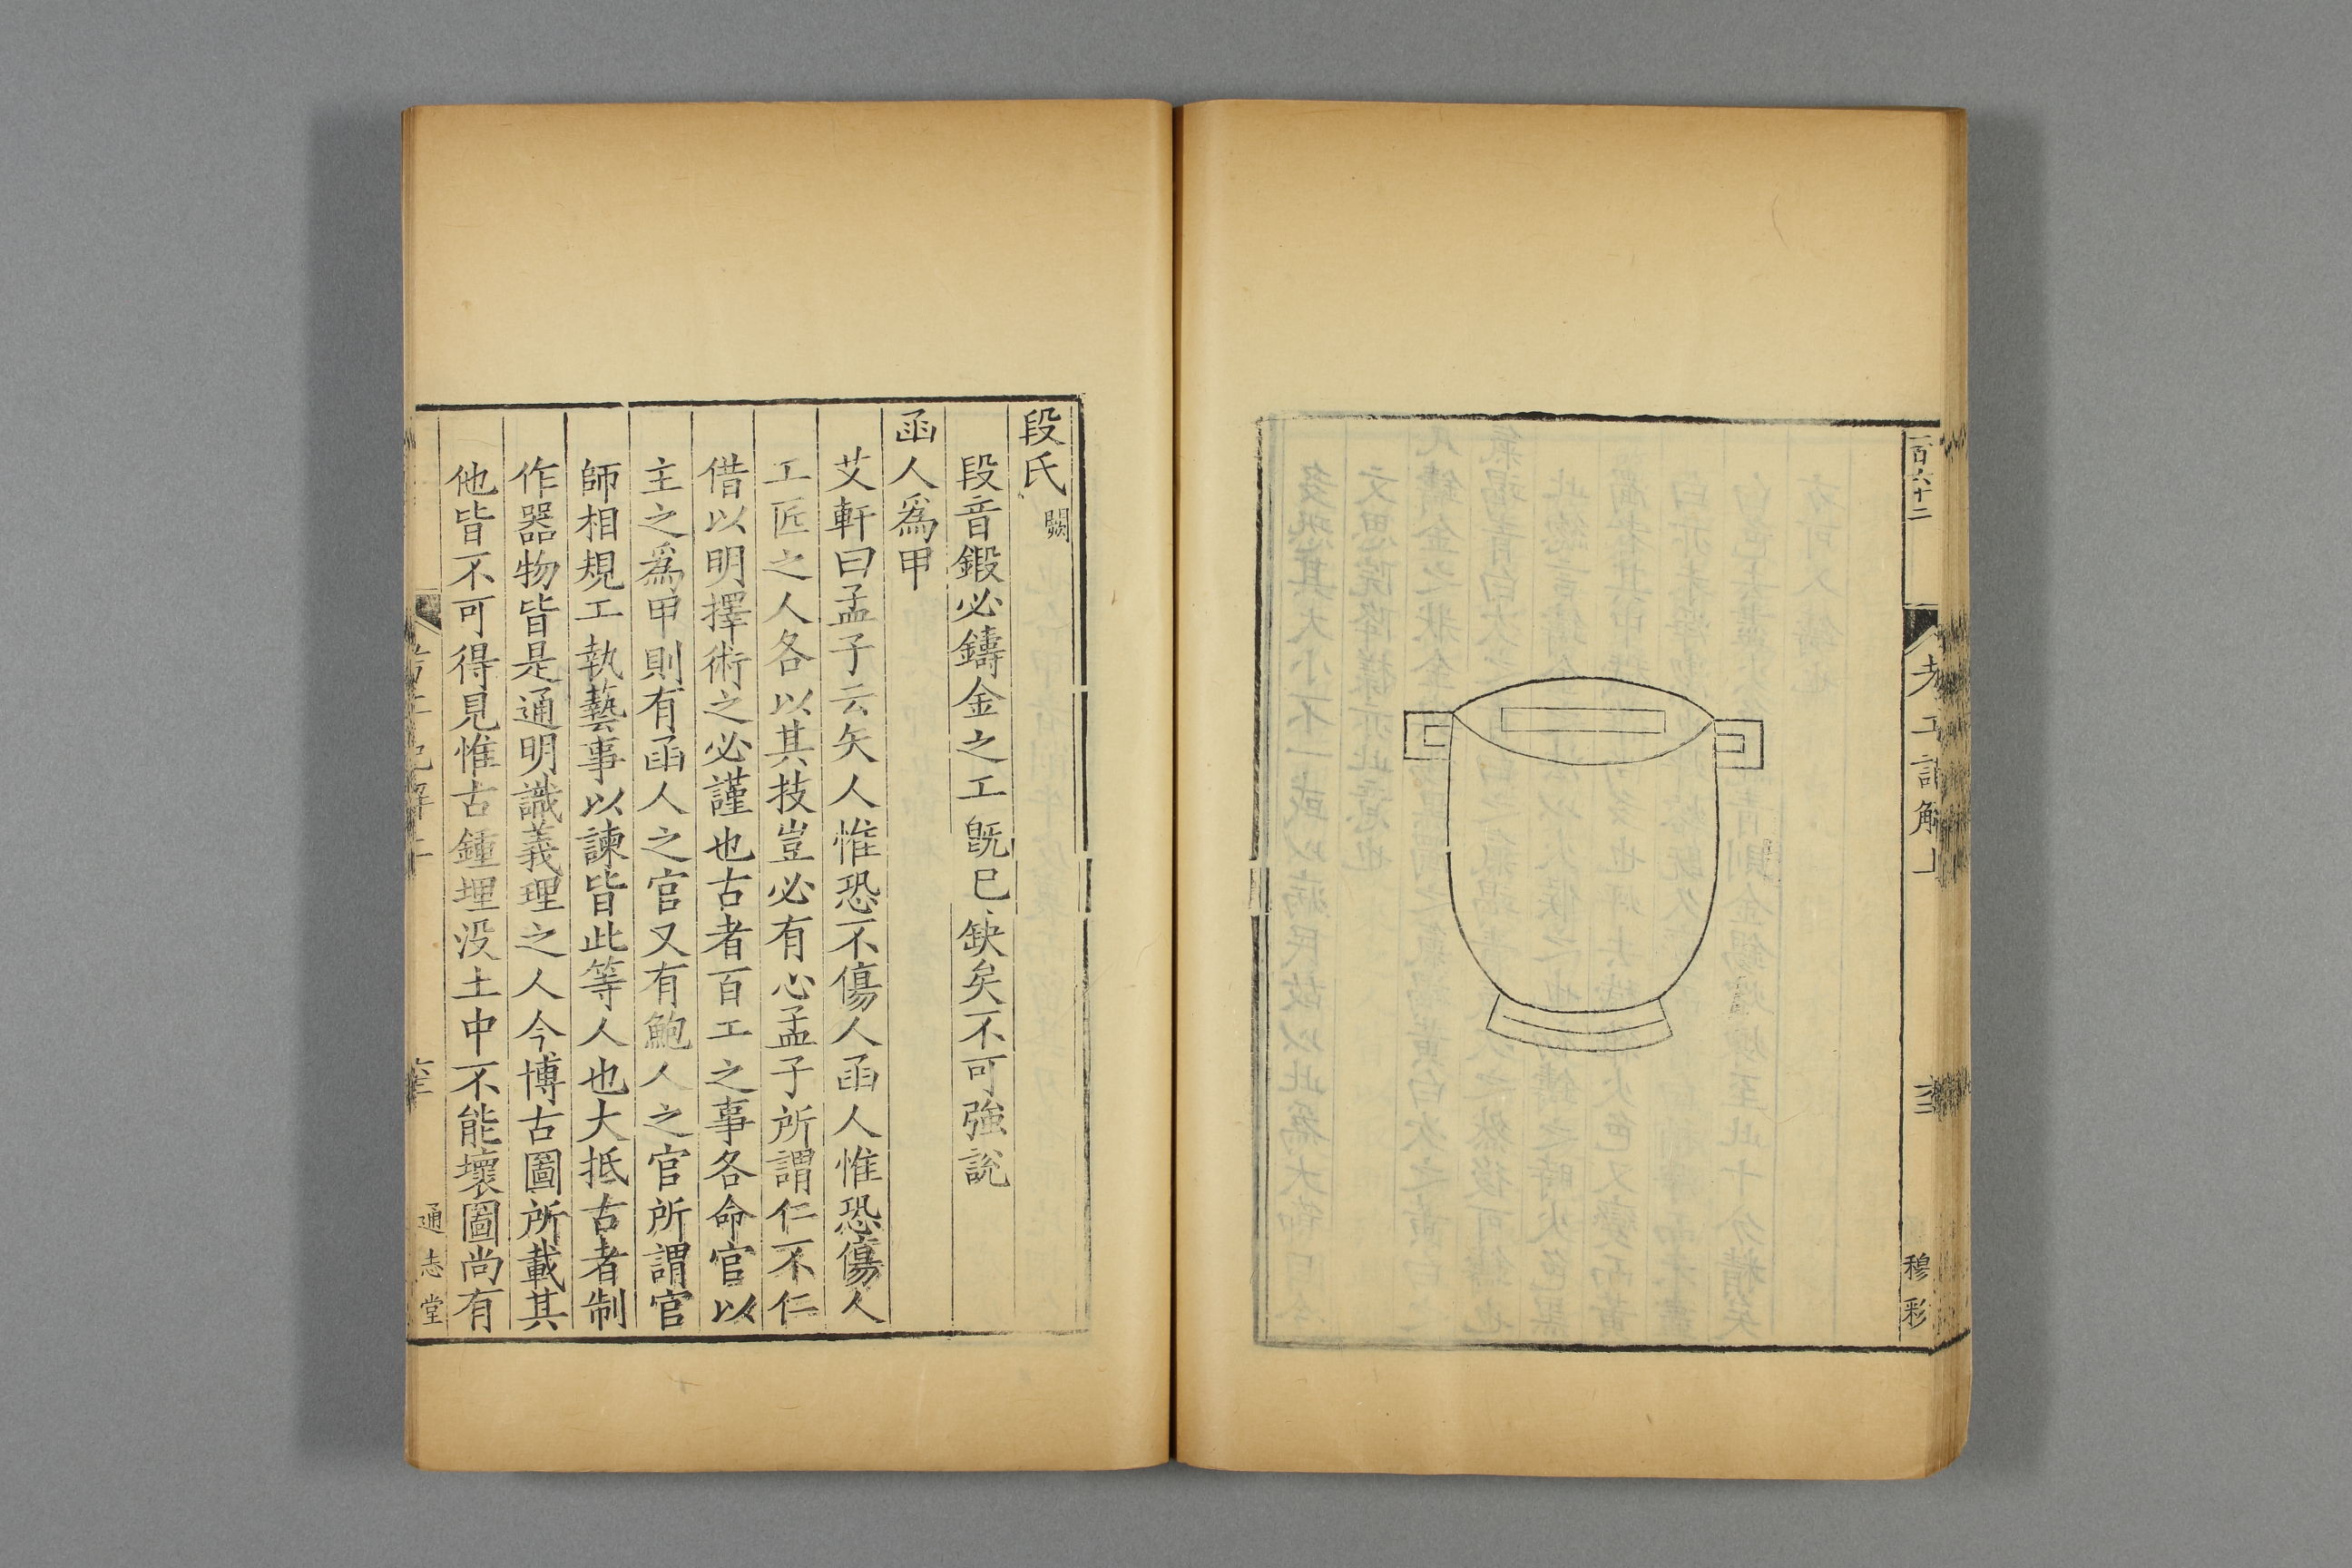 一百六十二
穆彩
段氏闕
段音鍛必鑄金之工旣已缺矣不可強説
函人爲甲
艾軒曰孟子云矢人惟恐不傷人函人惟恐傷人
工匠之人各以其技豈必有心孟子所謂仁不仁
借以明擇術之必謹也古者百工之事各命官以
主之爲甲則有函人之官又有鮑人之官所謂官
師相規工執藝事以諫皆此等人也大抵古者制
作器物皆是通明識義理之人今博古圖所載其
他皆不可得見惟古鍾埋没土中不能壞圖尚有
通志堂